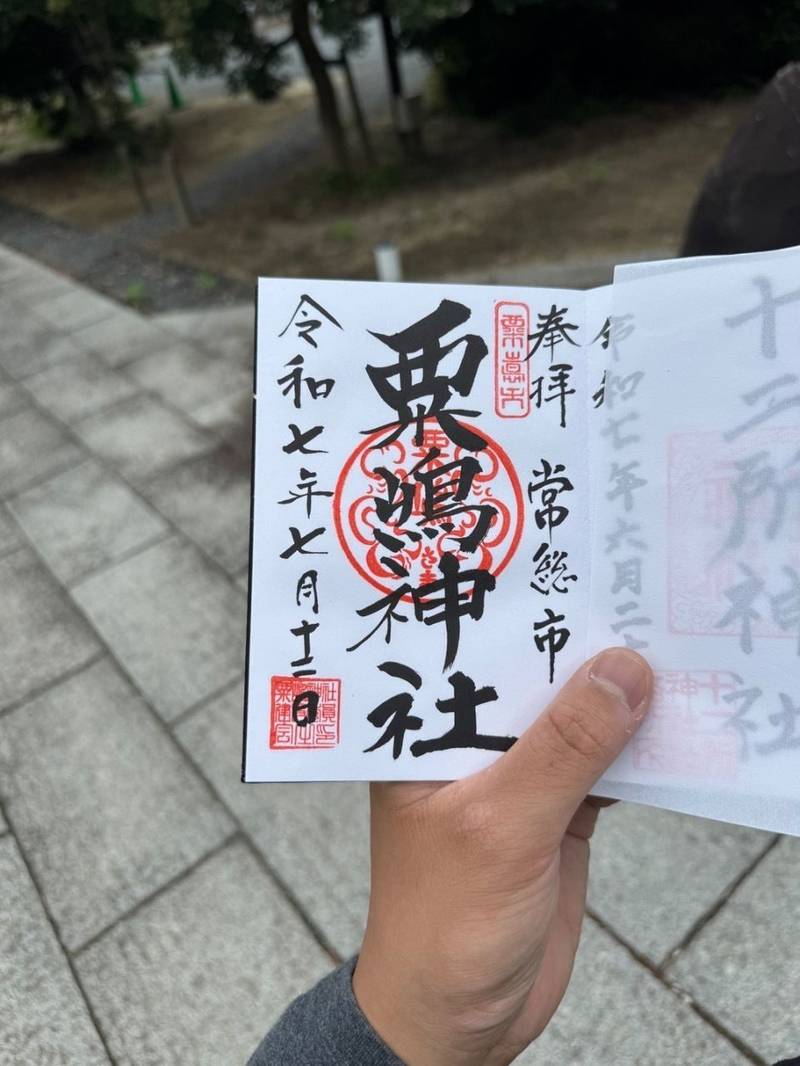 十二所神社
令和七年六月二十
奉拝 常総市
粟嶋神社
令和七年七月十二日